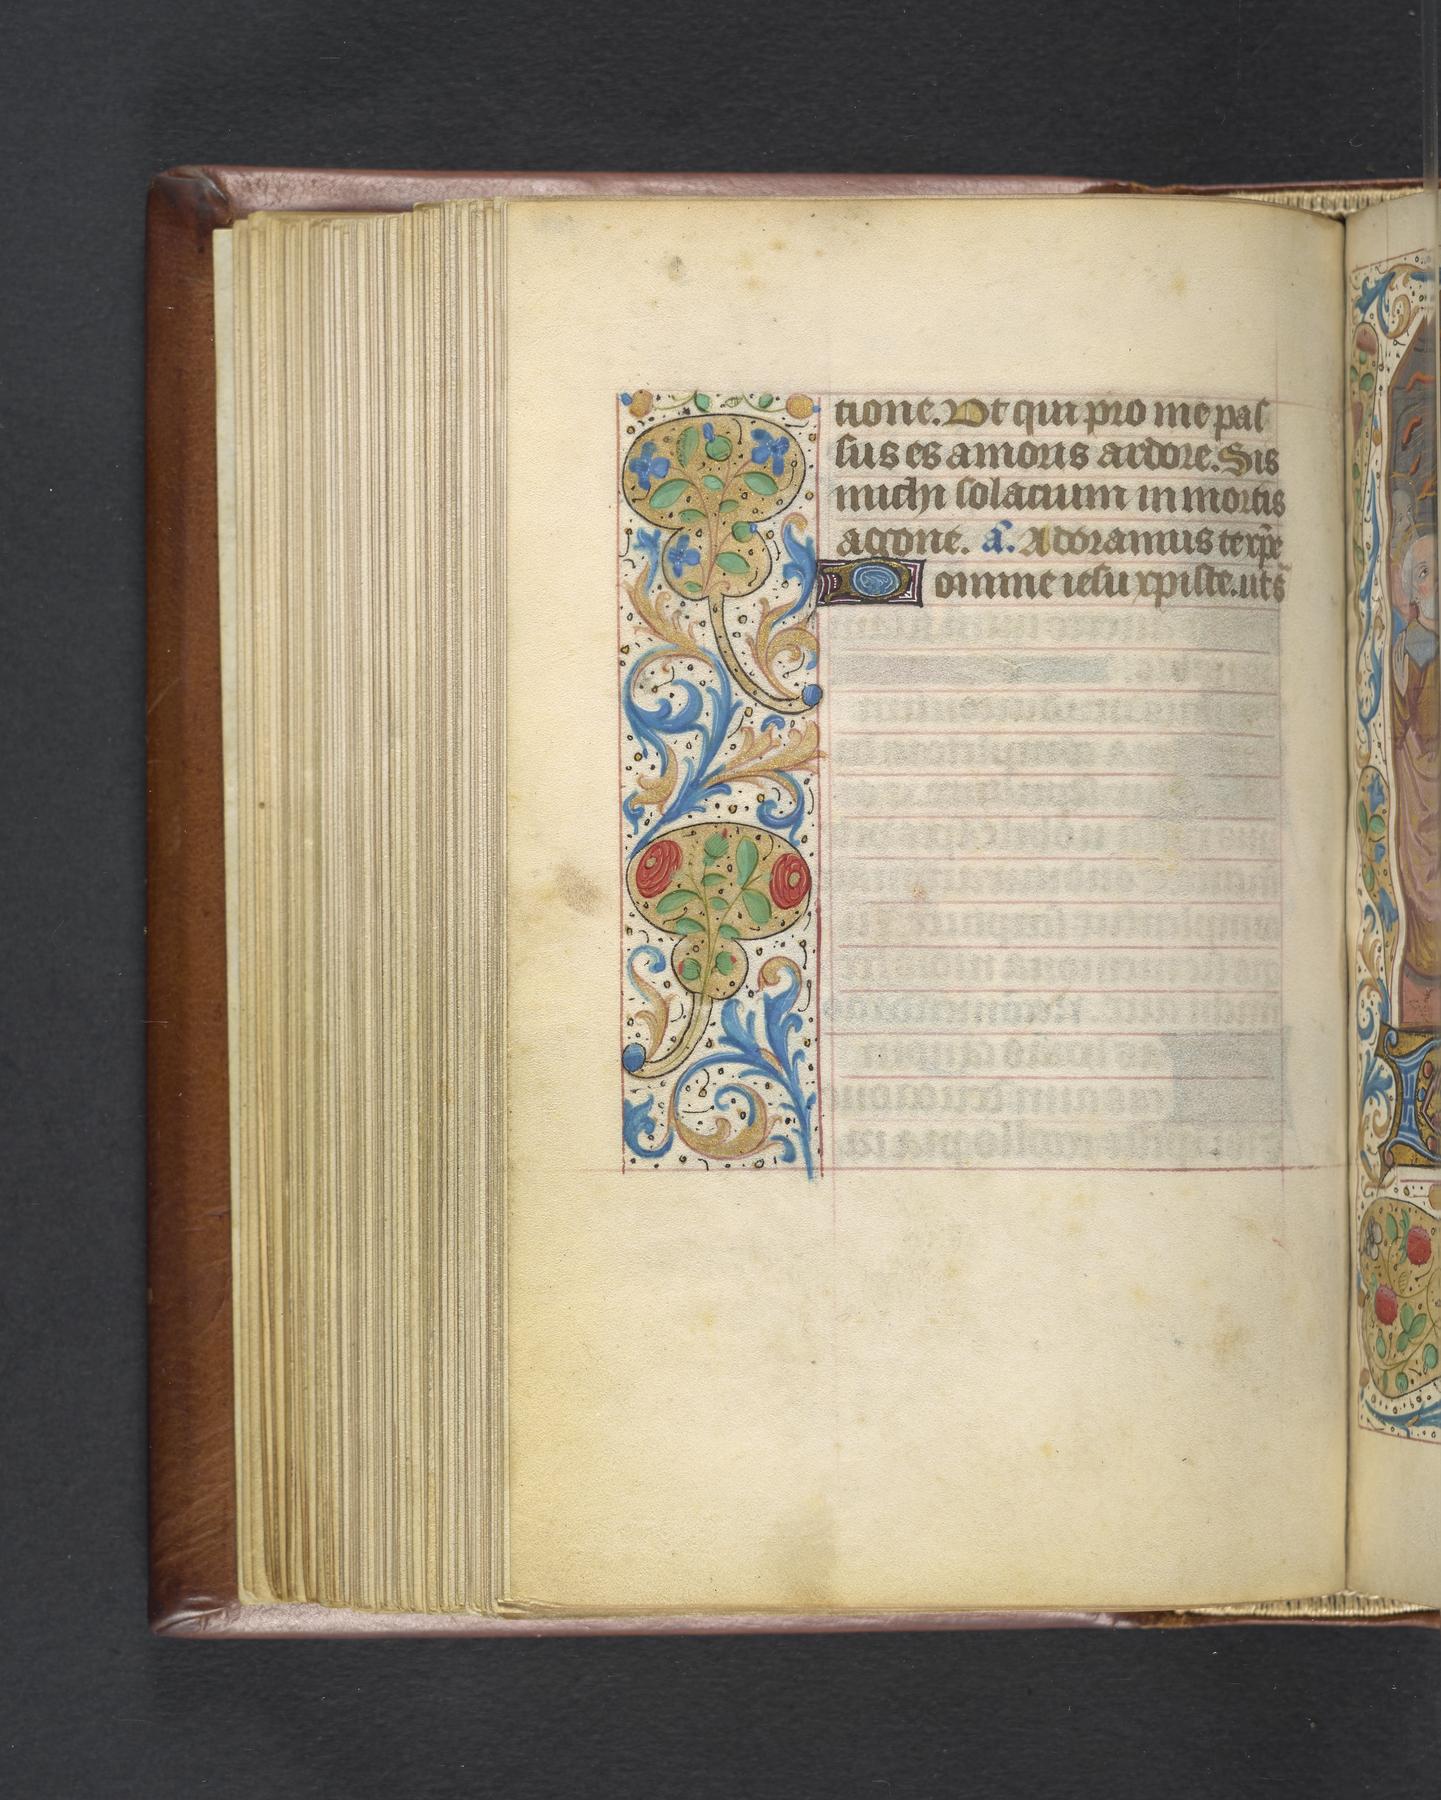 tione. Ut qui pro me pas
sus es amoris ardore. Sis
michi solacium in mortis
agone. a. Adoramus te xp̄e
omine iesu xpiste. ut s̄